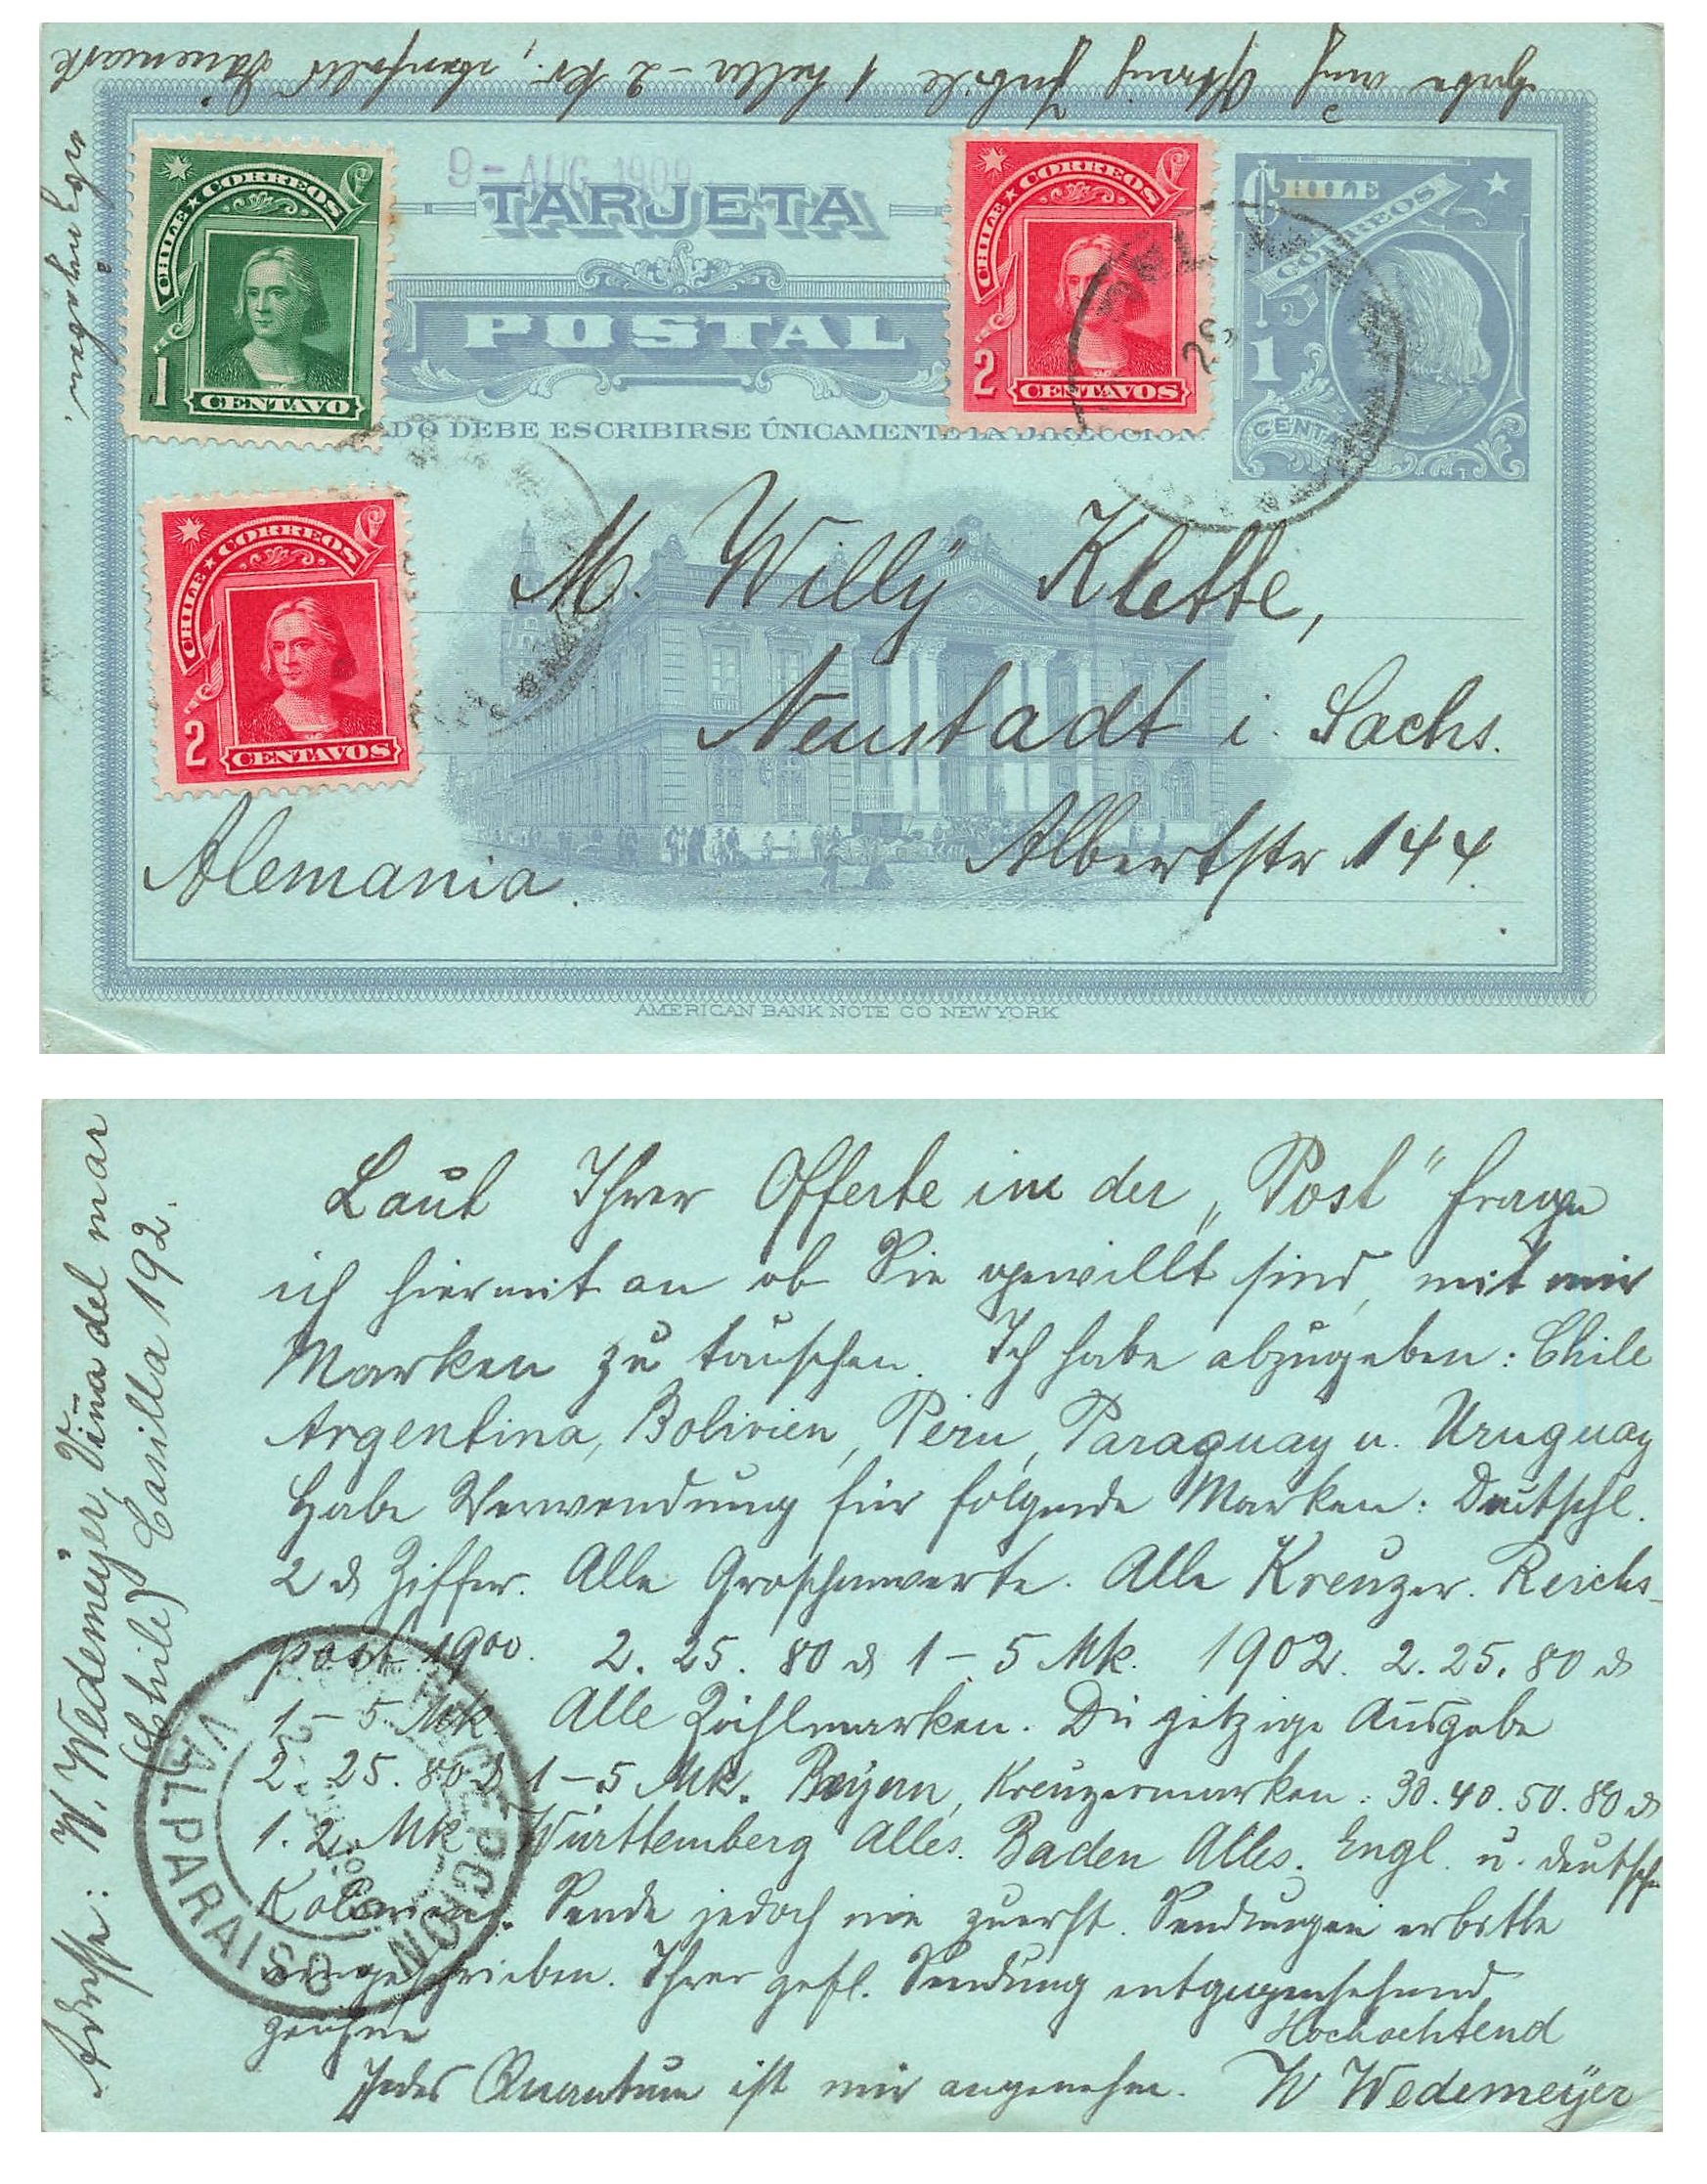 Habe auf Östreich Jubile 1 heller – 2 Kr., ebenfalls Dänemark
9 - AUG 1909
TARJETA
POSTAL
CHILE CORREOS
1 CENTAVO
CHILE CORREOS
2 CENTAVOS
CHILE
CORREOS
1
CENTA
ADO DEBE ESCRIBIRSE ÚNICAMENTE LA DIRECCIÓN
CHILE CORREOS
2 CENTAVOS
M. Willÿ Klette,
Neustadt i. Sachs.
Albertstr 144.
Alemania.
AMERICAN BANK NOTE CO NEW YORK
Laut Ihrer Offerte in der „Post“ frage
ich hiermit an ob Sie gewillt sind, mit mir
Marken zu tauschen. Ich habe abzugeben: Chile
Argentina, Bolivien, Peru, Paraguay u. Uruguay
Habe Verwendung für folgende Marken: Deutschl.
2 ₰ Ziffer. Alle Groschenwerte. Alle Kreuzer. Reichs-
post 1900. 2. 25. 80 ₰ 1 – 5 Mk. 1902. 2. 25. 80 ₰
1 – 5 Mk. Alle Zählmarken. Die jetzige Ausgabe
2. 25. 80 ₰ 1 – 5 Mk. Bayern, Kreuzermarken: 30. 40. 50. 80 ₰
1. 2. Mk Württemberg Alles. Baden Alles. Engl. u. deutsche
Kolonien. Sende jedoch nie zuerst. Sendungen erbitte
eingeschrieben. Ihrer gefl. Sendung entgegensehend
zeichne
Hochachtend
Jedes Quantum ist mir angenehm. W Wedemeÿer
Adresse: W. Wedemeÿer, Viña del mar
(Chile) Casilla 192.
VALPARAISO